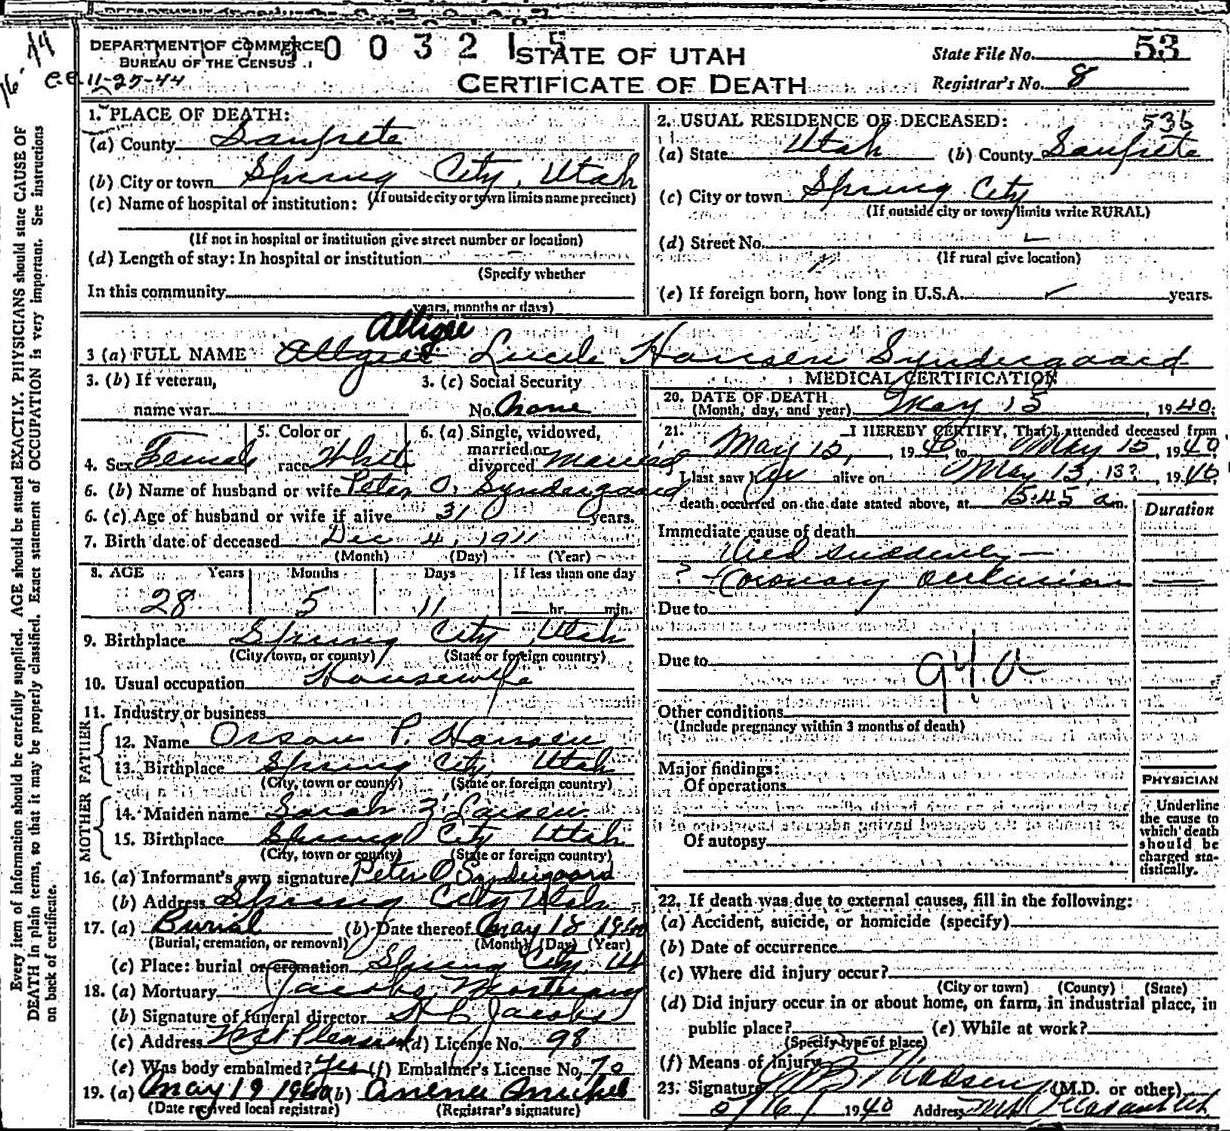 DEPARTMENT OF COMMERCE
BUREAU OF THE CENSUS
11-25-44
003215
STATE OF UTAH
CERTIFICATE OF DEATH
State File No. 53
Registrar's No. 8
Every item of information should be carefully supplied. AGE should be stated EXACTLY. PHYSICIANS should state CAUSE OF
DEATH in plain terms, so that it may be properly classified. Exact statement of OCCUPATION is very important. See instructions
on back of certificate.
1. PLACE OF DEATH:
(a) County Sanpete
(b) City or town Spring City, Utah
(If outside city or town limits name precinct)
(c) Name of hospital or institution:
(If not in hospital or institution give street number or location)
(d) Length of stay: In hospital or institution
(Specify whether
In this community
years, months or days)
2. USUAL RESIDENCE OF DECEASED: 536
(a) State Utah (b) County Sanpete
(c) City or town Spring City
(If outside city or town limits write RURAL)
(d) Street No.
(If rural give location)
(e) If foreign born, how long in U.S.A. years.
3 (a) FULL NAME Lucile Hansen Syndergaard
3. (b) If veteran,
name war
3. (c) Social Security
No. None
4. Sex Female
5. Color or
race White
6. (a) Single, widowed,
married or
divorced Married
6. (b) Name of husband or wife Peter O. Syndergaard
6. (c) Age of husband or wife if alive 31 years.
7. Birth date of deceased Dec 4, 1911
(Month) (Day) (Year)
8. AGE Years Months Days If less than one day
28 5 11 hr. min.
9. Birthplace Spring City Utah
(City, town, or county) (State or foreign country)
10. Usual occupation Housewife
11. Industry or business
FATHER
12. Name P. Hansen
13. Birthplace Spring City, Utah
(City, town or county) (State or foreign country)
MOTHER
14. Maiden name Sarah Larsen
15. Birthplace Spring City Utah
(City, town or county) (State or foreign country)
16. (a) Informant's own signature Peter O Syndergaard
(b) Address Spring City Utah
17. (a) Burial (b) Date thereof May 18 1940
(Burial, cremation, or removal) (Month) (Day) (Year)
(c) Place: burial or cremation Spring City Ut
18. (a) Mortuary Jacobs Mortuary
(b) Signature of funeral director Jacobs
(c) Address Mt Pleasant (d) License No. 98
(e) Was body embalmed? Yes (f) Embalmer's License No. 70
19. (a) May 19 1940 (b)
(Date received local registrar) (Registrar's signature)
MEDICAL CERTIFICATION
20. DATE OF DEATH
(Month, day, and year) May 15, 1940
21. I HEREBY CERTIFY, That I attended deceased from
May 15, 1940 to May 15, 1940
I last saw her alive on May 13, 13? 1940
death occurred on the date stated above, at 5:45 a m.
Duration
Immediate cause of death
Died suddenly —
? Coronary occlusion
Due to
Due to
94 a
Other conditions
(Include pregnancy within 3 months of death)
Major findings:
Of operations
Of autopsy
PHYSICIAN
Underline
the cause to
which death
should be
charged sta-
tistically.
22. If death was due to external causes, fill in the following:
(a) Accident, suicide, or homicide (specify)
(b) Date of occurrence
(c) Where did injury occur?
(City or town) (County) (State)
(d) Did injury occur in or about home, on farm, in industrial place, in
public place? (e) While at work?
(Specify type of place)
(f) Means of injury
23. Signature Madsen (M.D. or other)
5/16/1940 Address Mt Pleasant Ut